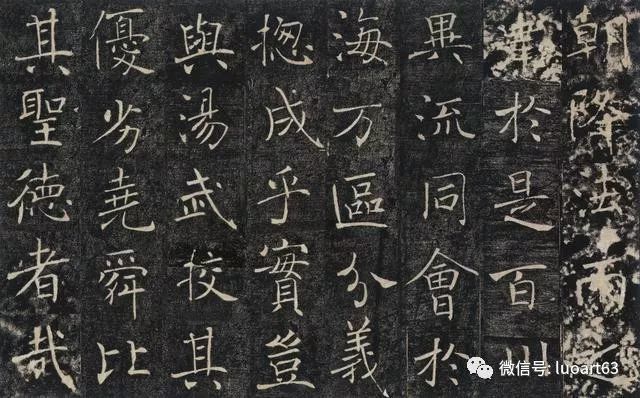 朝降法雨之
於是百川
異流同會於
海万區分義
揔成乎實豈
與湯武校其
優劣堯舜比
其聖德者哉
微信号: luoart63